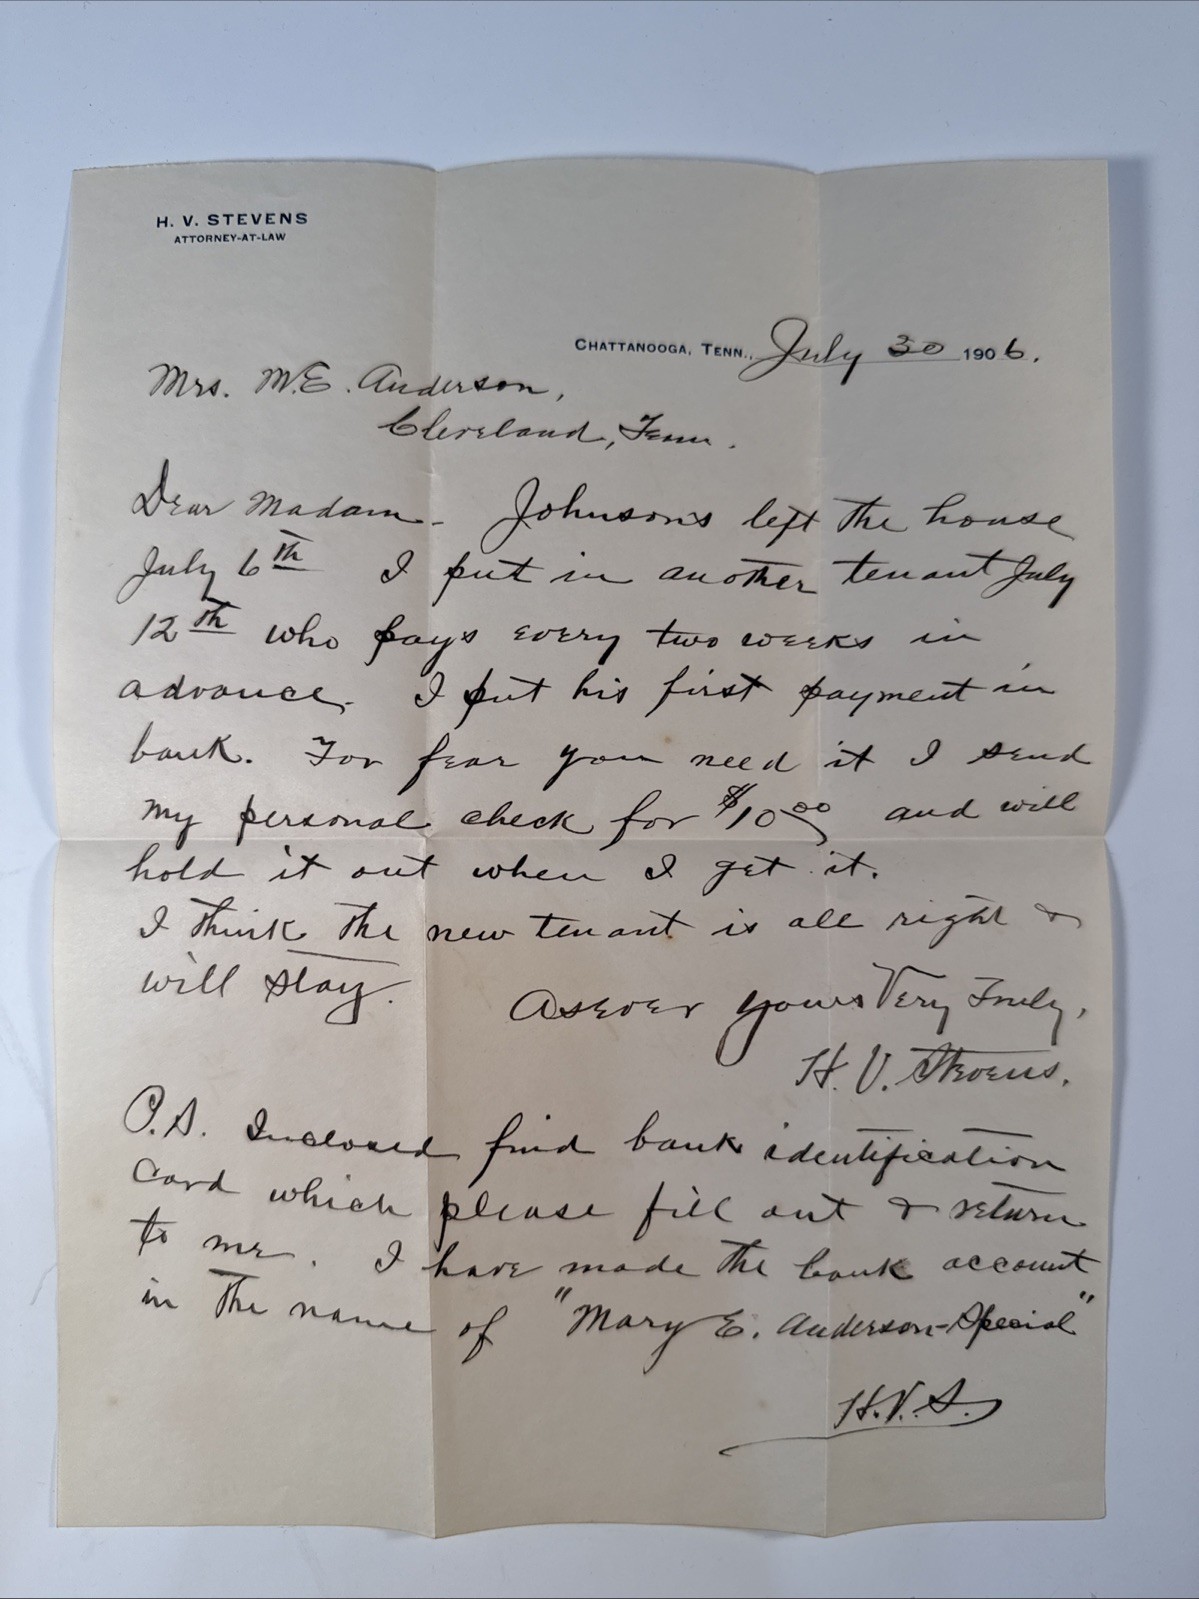 H. V. STEVENS
ATTORNEY-AT-LAW
CHATTANOOGA, TENN., July 30 1906.
Mrs. M.E. Anderson,
Cleveland, Tenn.
Dear Madam- Johnsons left the house
July 6th I put in another tenant July
12th who pays every two weeks in
advance. I put his first payment in
bank. For fear you need it I send
my personal check for $10.00 and will
hold it out when I get it.
I think the new tenant is all right &
will stay.
As ever yours Very Truly,
H. V. Stevens.
P.S. Inclosed find bank identification
card which please fill out & return
to me. I have made the bank account
in the name of "Mary E. Anderson-Special"
H.V.S.